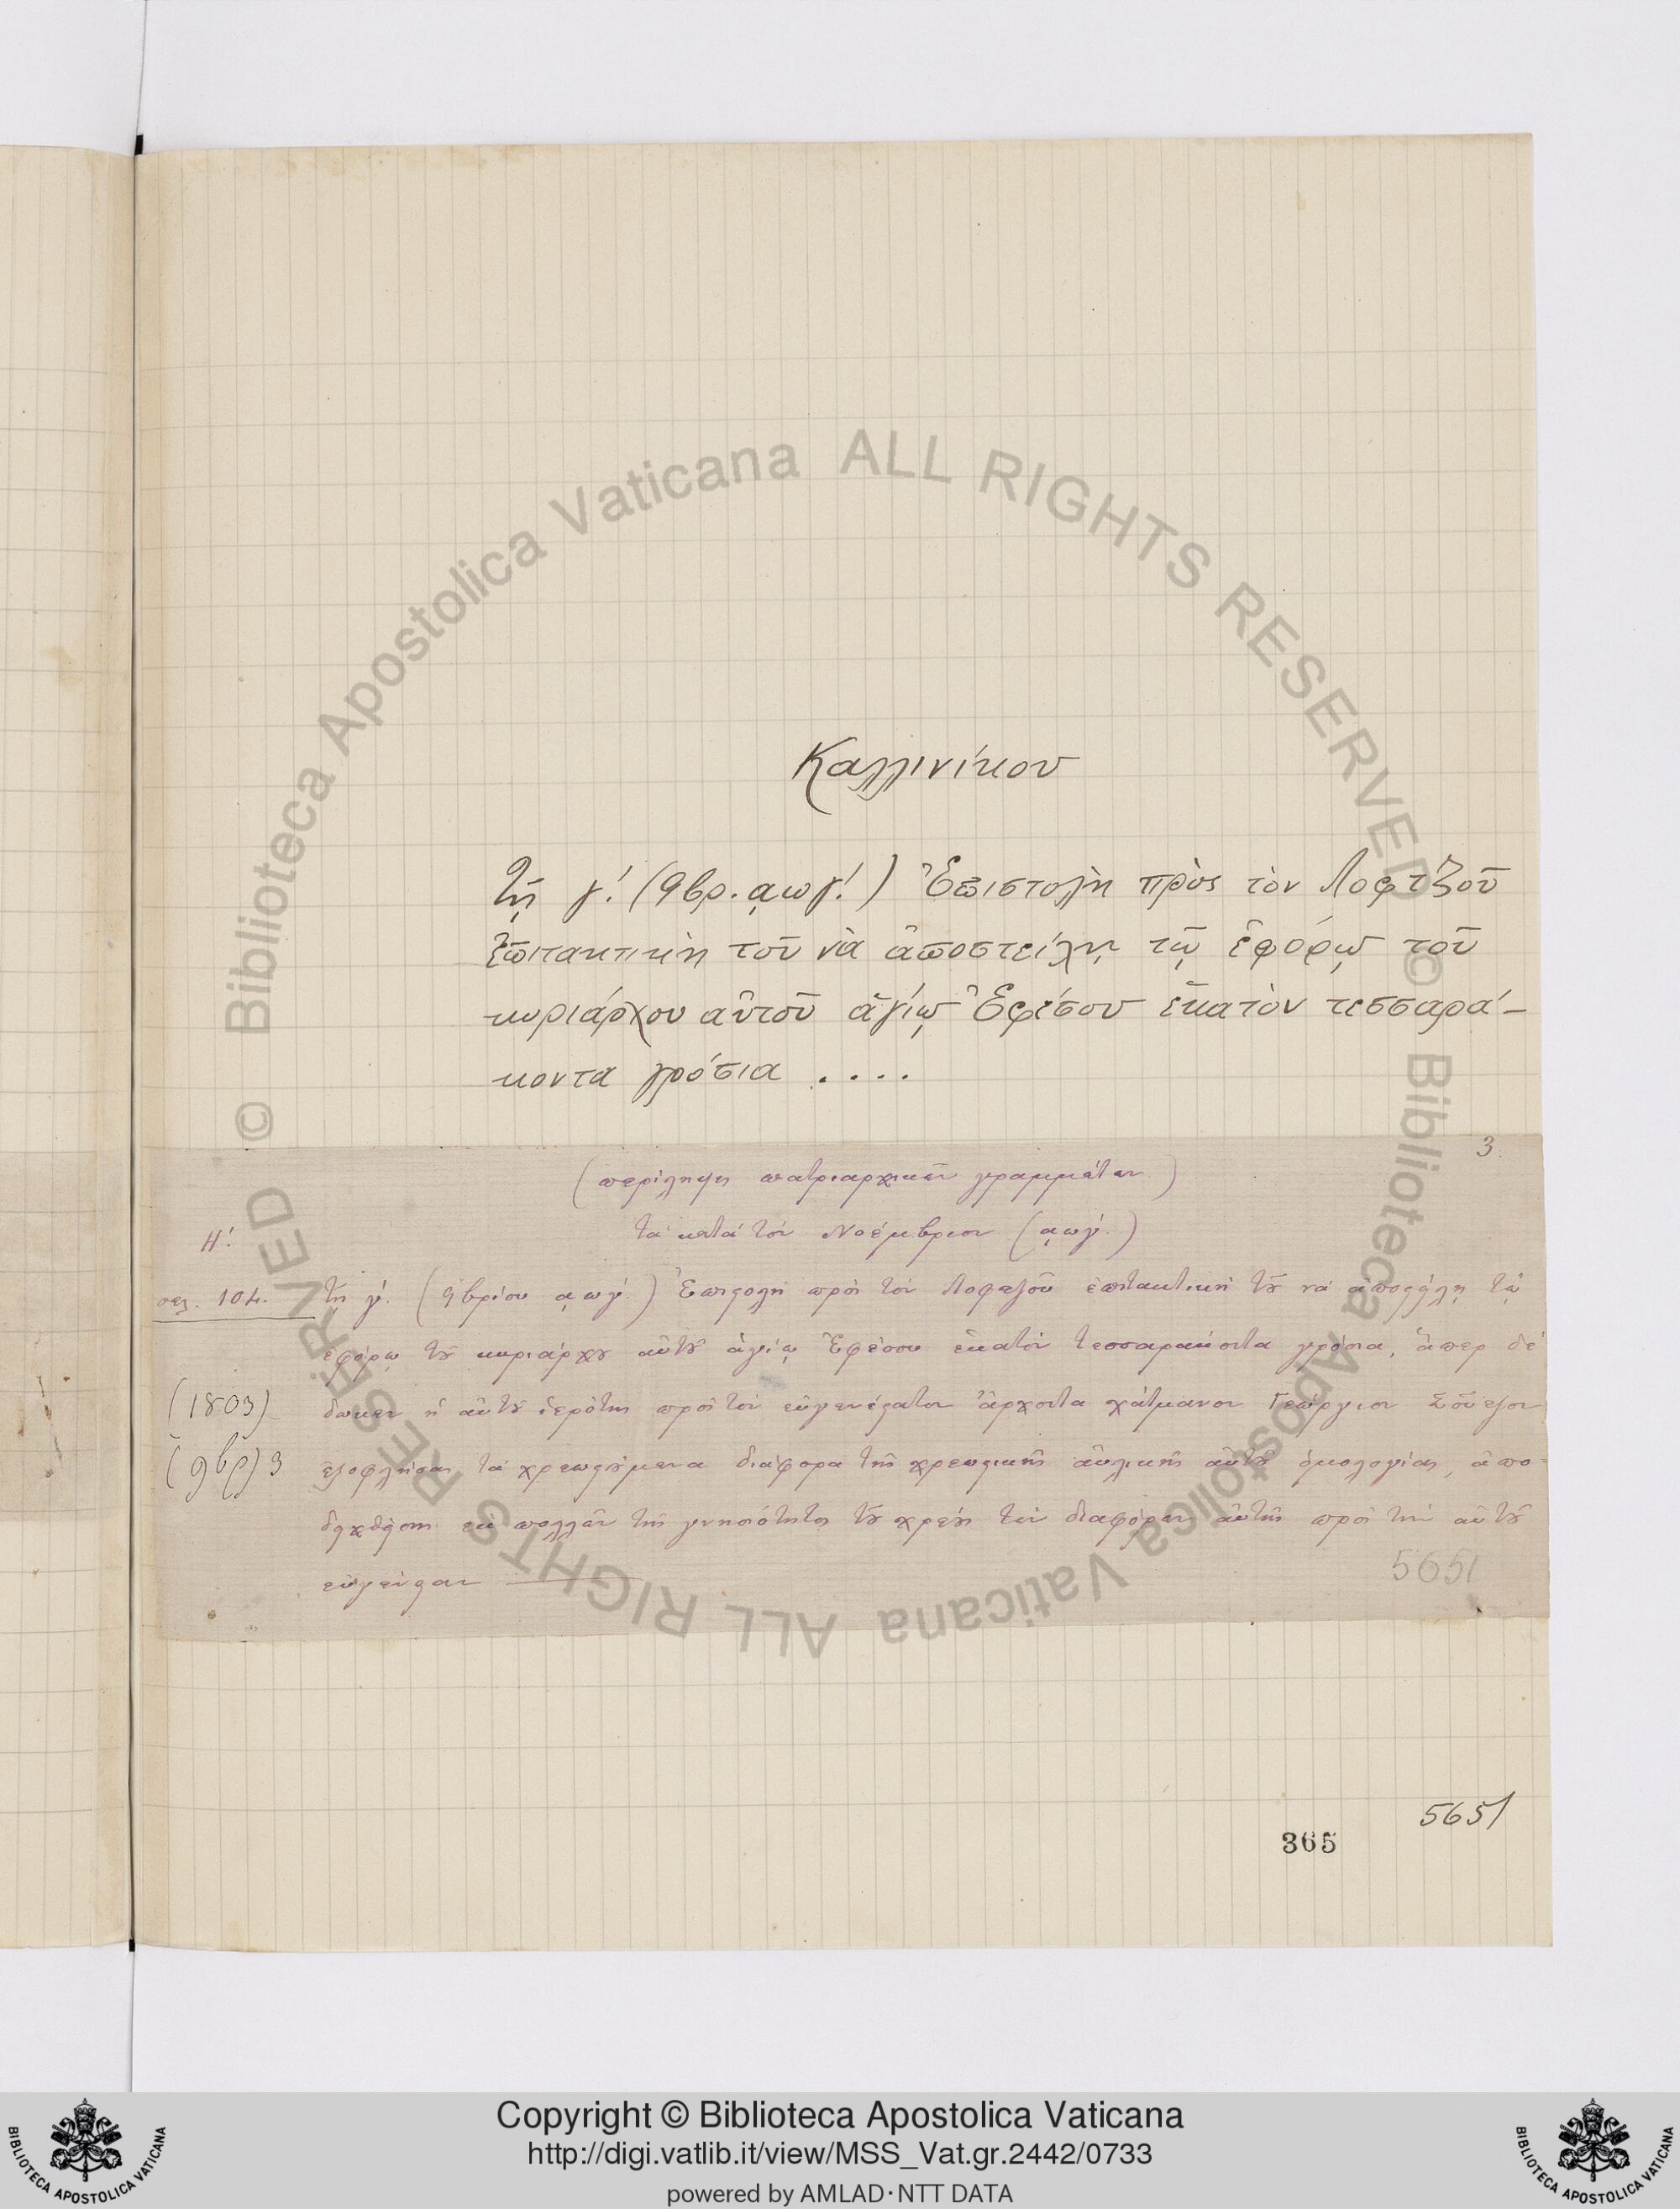 Καλλινίκου
Τῇ γ΄. (9βρ. ͵αωγ΄.) Ἐπιστολὴ πρὸς τὸν Λοφτζοῦ
ἐπιτακτικὴ τοῦ νὰ ἀποστείλῃ τῷ ἐφόρῳ τοῦ
κυριάρχου αὐτοῦ ἁγίῳ Ἐφέσου ἑκατὸν τεσσαρά-
κοντα γρόσια ....
3
(περίληψις πατριαρχικῶν γραμμάτων)
τὰ κατὰ τὸν Νοέμβριον (͵αωγ΄.)
Η΄.
σελ. 104. τῇ γ΄. (9βρίου ͵αωγ΄.) Ἐπιστολὴ πρὸς τὸν Λοφτζοῦ ἐπιτακτικὴ τοῦ νὰ ἀποστείλῃ τῷ
ἐφόρῳ τοῦ κυριάρχου αὐτοῦ ἁγίῳ Ἐφέσου ἑκατὸν τεσσαράκοντα γρόσια, ἅπερ δέ
(1803) δωκεν ἡ αὐτοῦ ἱερότης πρὸς τὸν εὐγενέστατον ἄρχοντα χάτμανον Γεώργιον Σοῦτζον
(9βρ) 3 ἐξοφλήσας τὰ χρεωστούμενα διάφορα τῆς χρεωστικῆς αὐλικῆς αὐτοῦ ὁμολογίας, ἀπο-
δειχθείσης ἐκ πολλῶν τῆς γνησιότητος τοῦ χρέους τῶν διαφόρων αὐτῆς πρὸς τὴν αὐτοῦ
εὐγένειαν
5651
5651
365
Biblioteca Apostolica Vaticana ALL RIGHTS RESERVED ©
Biblioteca Apostolica Vaticana ALL RIGHTS RESERVED ©
Copyright © Biblioteca Apostolica Vaticana
http://digi.vatlib.it/view/MSS_Vat.gr.2442/0733
powered by AMLAD·NTT DATA
BIBLIOTECA APOSTOLICA VATICANA
BIBLIOTECA APOSTOLICA VATICANA